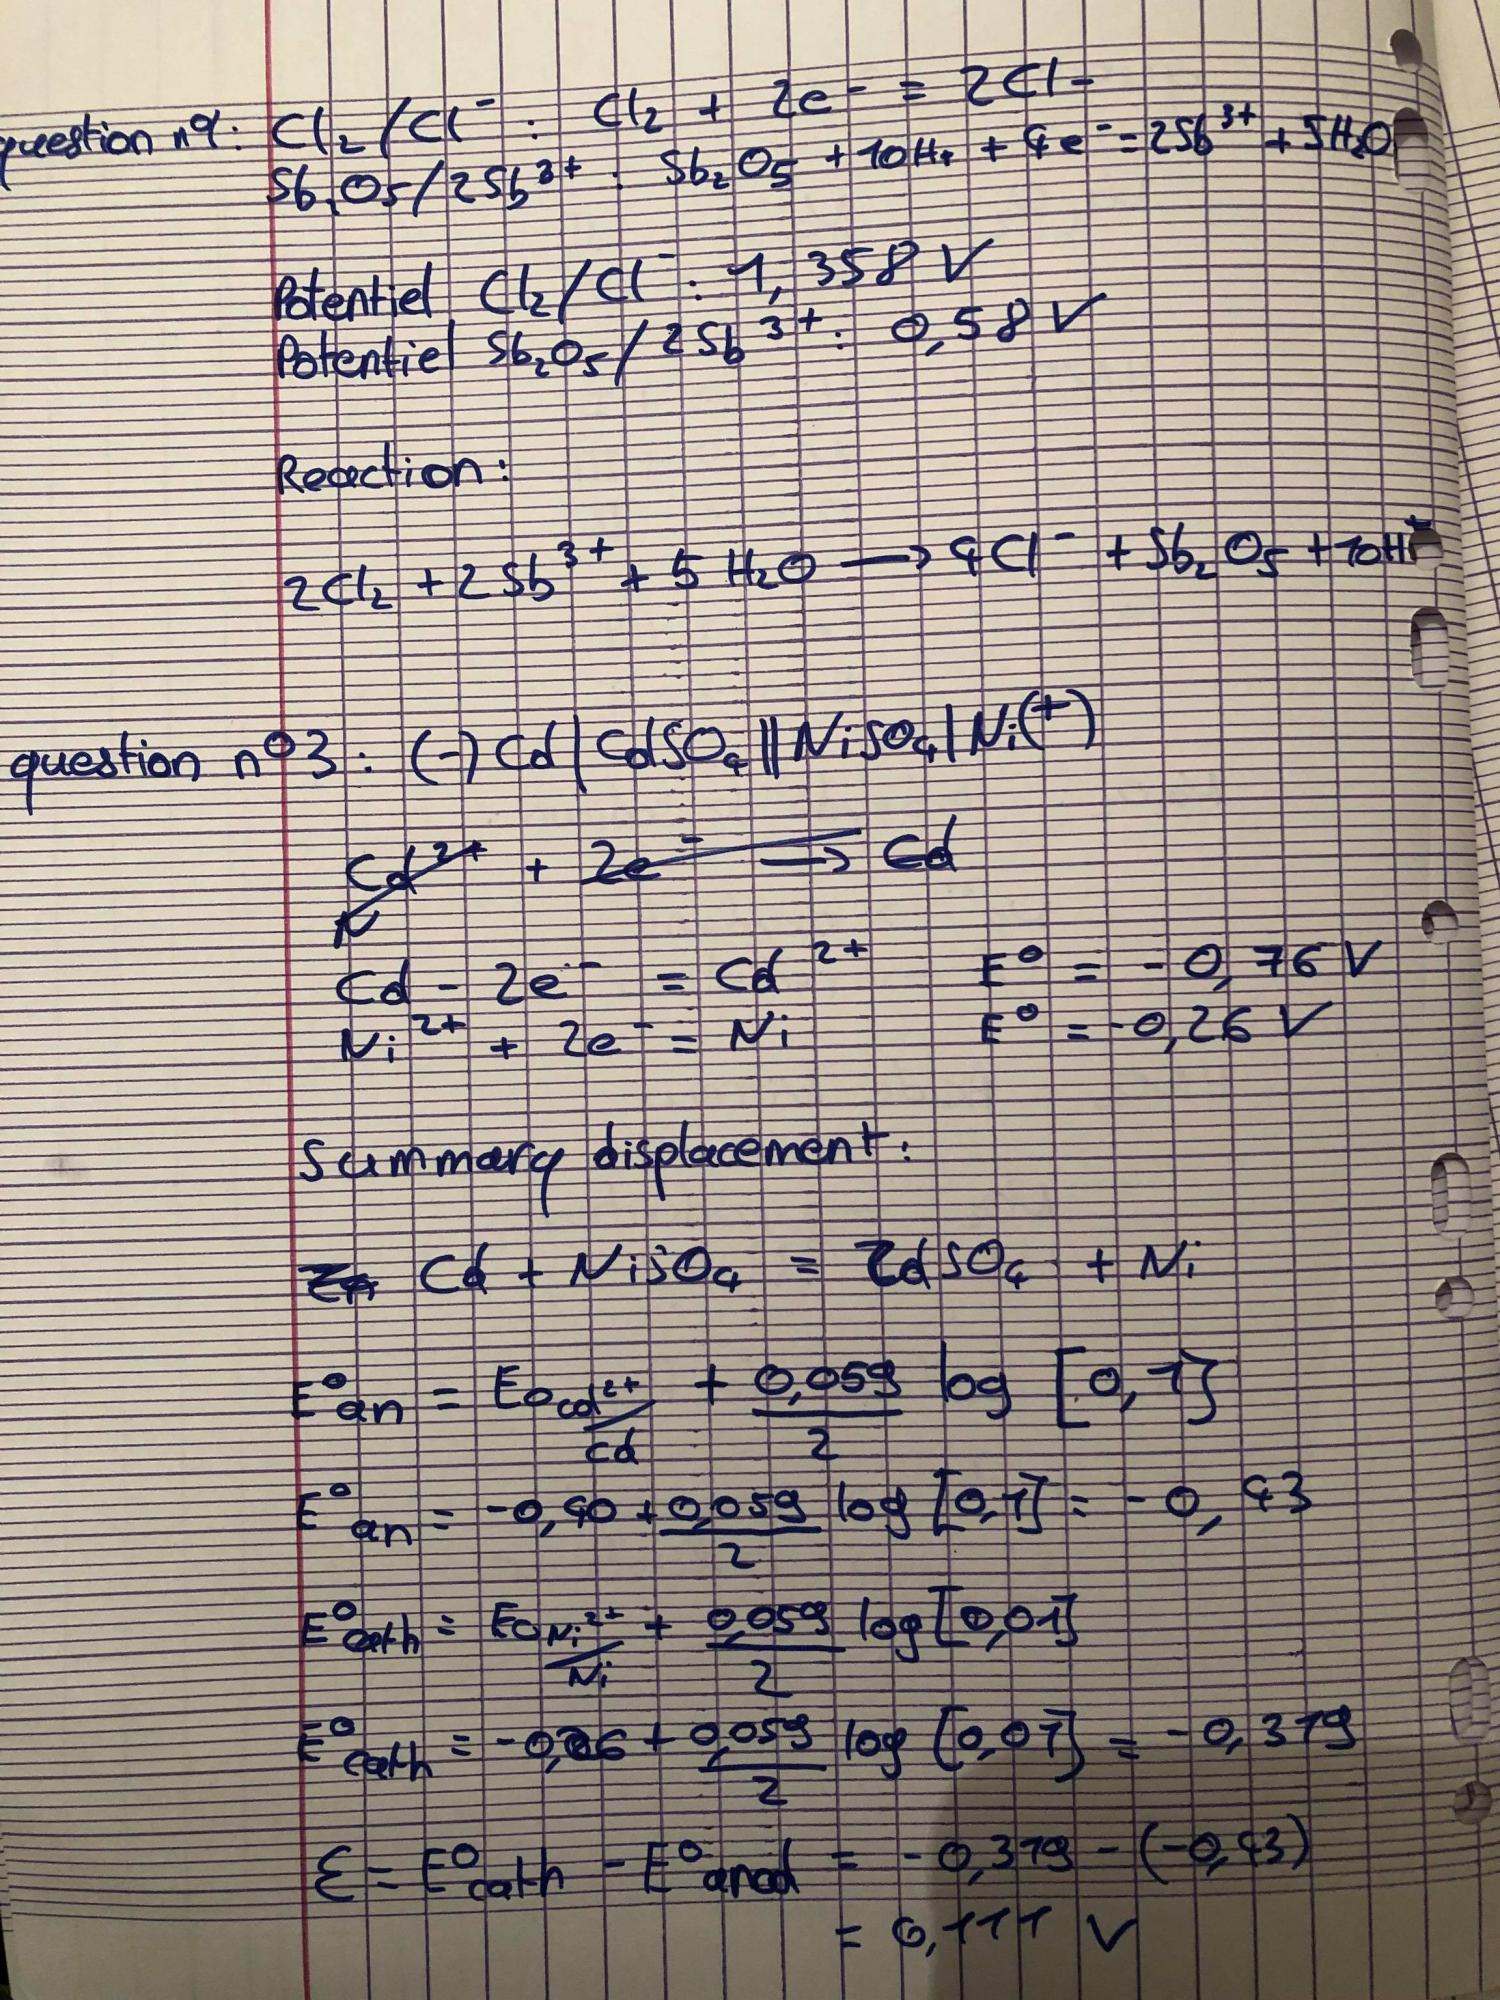 question n°1: Cl₂/Cl⁻ : Cl₂ + 2e⁻ = 2Cl⁻
Sb₂O₅/2Sb³⁺ : Sb₂O₅ + 10H+ + 4e⁻ = 2Sb³⁺ + 5H₂O
Potentiel Cl₂/Cl⁻ : 1,358 V
Potentiel Sb₂O₅/2Sb³⁺ : 0,58 V
Reaction:
2Cl₂ + 2Sb³⁺ + 5 H₂O → 4Cl⁻ + Sb₂O₅ + 10H⁺
question n°3 : (-) Cd | CdSO₄ || NiSO₄ | Ni (+)
Cd²⁺ + 2e⁻ → Cd
N
Cd - 2e⁻ = Cd²⁺ E° = -0,76 V
Ni²⁺ + 2e⁻ = Ni E° = -0,26 V
Summary displacement :
Zn Cd + NiSO₄ = ZdSO₄ + Ni
E°an = E0 cd²⁺/cd + 0,059/2 log [0,1]
E°an = -0,40 + 0,059/2 log [0,1] = -0,43
E°cath = E0 Ni²⁺/Ni + 0,059/2 log [0,01]
E°cath = -0,26 + 0,059/2 log [0,01] = -0,319
Ɛ = E°cath - E°anod = -0,319 - (-0,43)
= 0,111 V